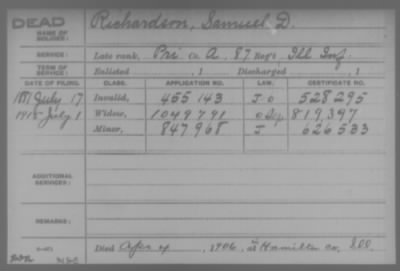 DEAD
NAME OF SOLDIER: Richardson, Samuel D.
SERVICE: Late rank, Pri. Co. A, 87 Reg't Ill Inf.
TERM OF SERVICE: Enlisted , 1 Discharged , 1
DATE OF FILING. CLASS. APPLICATION NO. LAW. CERTIFICATE NO.
July 17 Invalid, 455 143 J 528295
July 1 Widow, 1049791 819,397
Minor, 847968 J 626533
ADDITIONAL SERVICES:
REMARKS:
Died Apr 4, 1906, at Hamilton co,